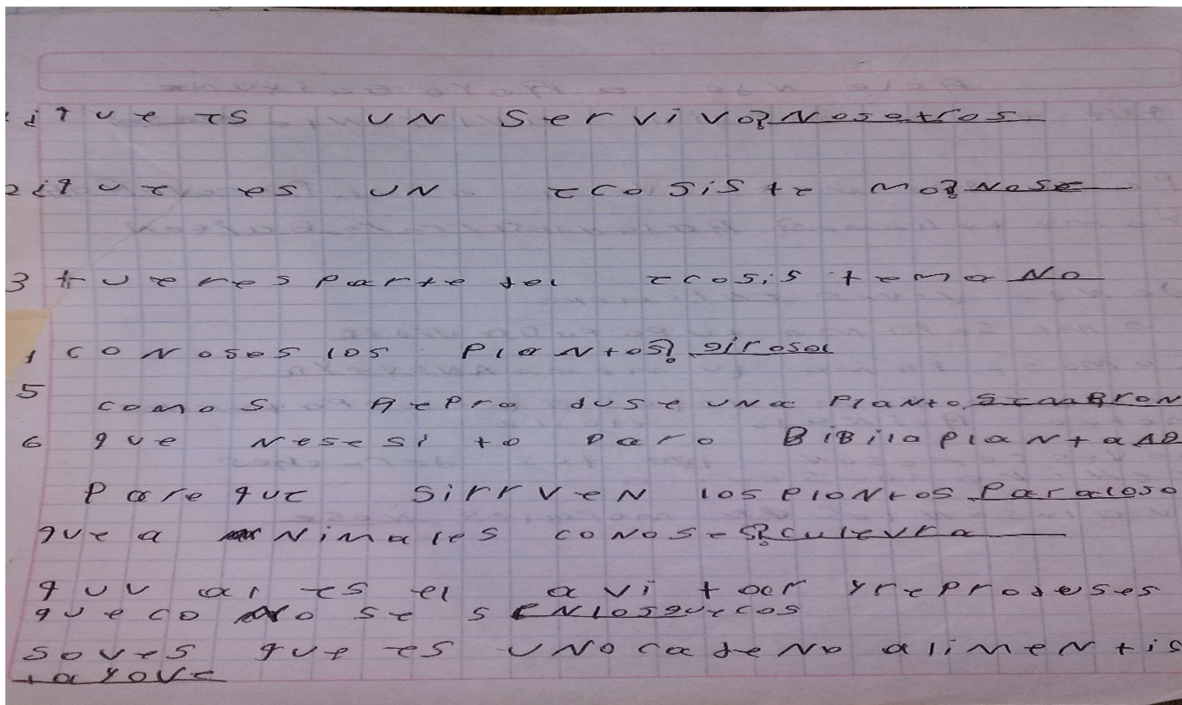 ¿que es un ser vivo? Nosotros
2 ¿que es un ecosiste mo? NOSE
3 tu eres parte del ecosis tema No
CONOSES los PlaNtos? girasol
5
como s Repro duse una PlaNta SEMBRON
6 que Nesesi to para BiBi la plaN+a
Para que sirrveN los PlaNtas Para
que a Nimales conoses? culevra
quv al es el avi + r y reproduses
que co no se s EN los quecos
saves que es UNa cadeNa alimeN tis